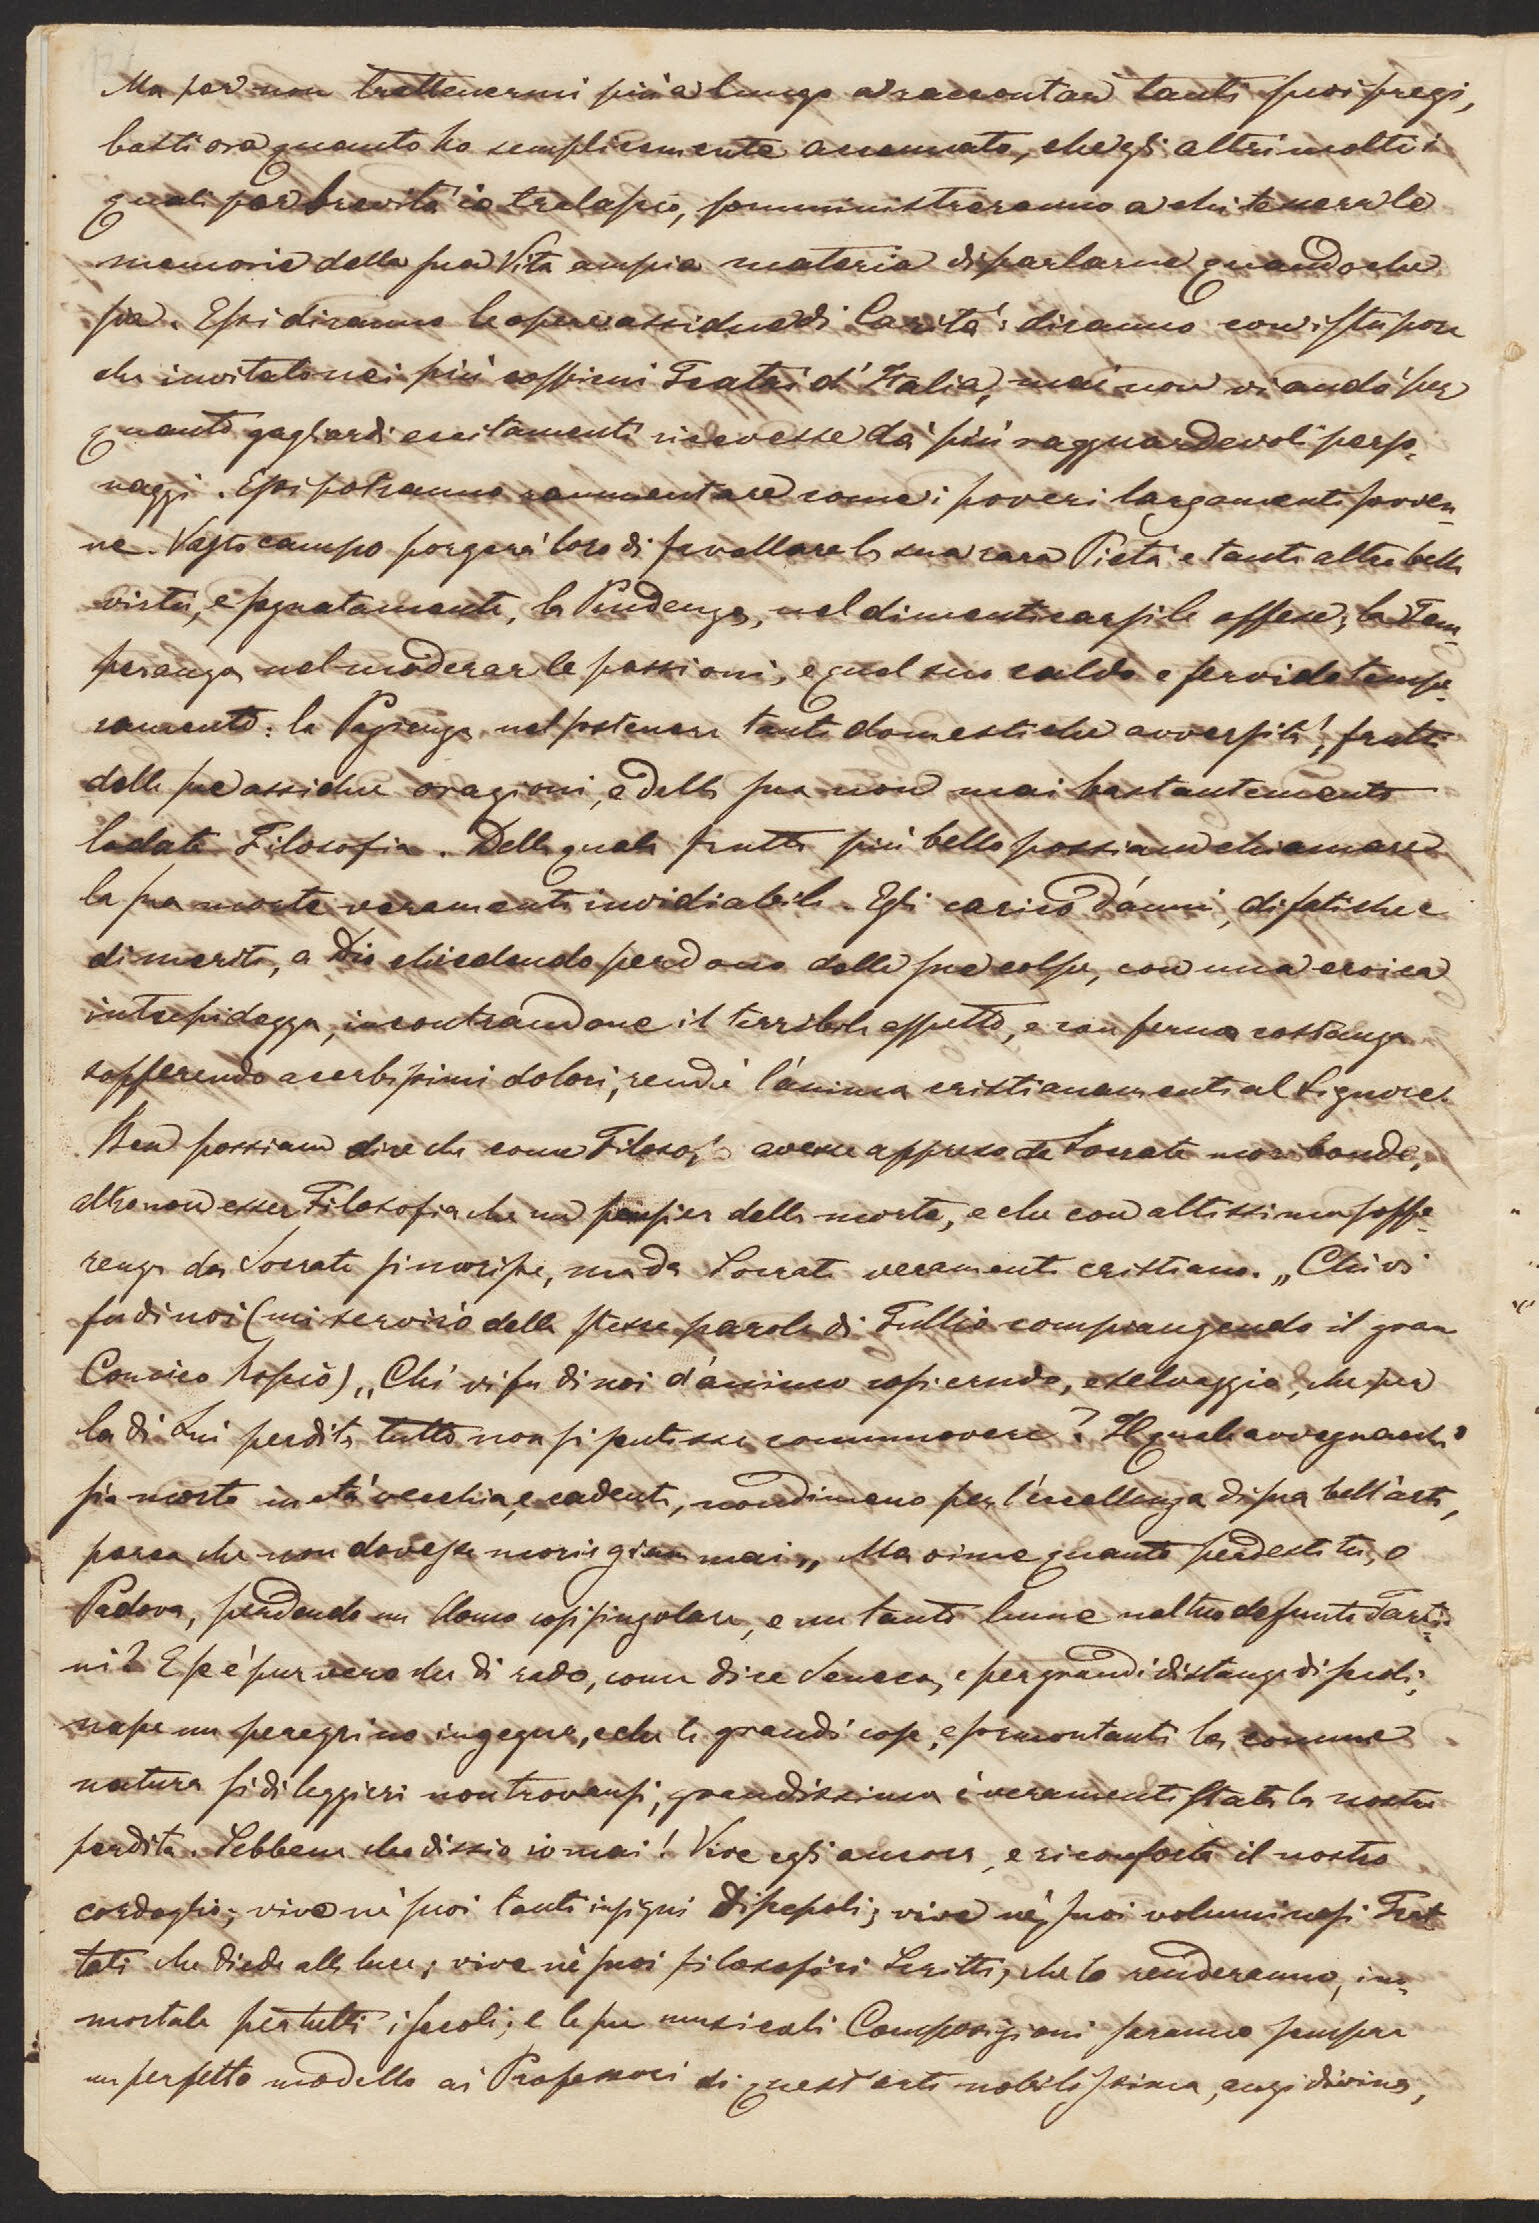 Ma per non trattenermi più a lungo a raccontar tanti suoi pregi,
basti ora quanto ho semplicemente accennato, che gli altri molti i
quali per brevità io tralascio, somministreranno a chi tesserà le
memorie della sua Vita ampia materia di parlarne quando che
sia. Essi diranno le opere assidue di Carità: diranno con istupore
che invitato nei più cospicui Teatri d'Italia, mai non vi andò per
quanto gagliardi eccitamenti ricevesse dà più ragguardevoli perso=
naggi. Essi potranno rammentare come i poveri largamente sovven=
ne. Vasto campo porgerà loro di favellare la sua rara Pietà e tante altre belle
virtù, e segnatamente, la Prudenza, nel dimenticarsi le offese; la Tem=
peranza nel moderar le passioni, e quel suo caldo e fervido tempe=
ramento: la Pazienza nel sostenere tante domestiche avversità, frutti
delle sue assidue orazioni, e della sua non mai bastantemente
lodata Filosofia. Della quale frutto più bello possiam chiamare
la sua morte veramente invidiabile. Egli carico d'anni, di fatiche e
di merito, a Dio chiedendo perdono delle sue colpe, con una eroica
intrepidezza, incontrandone il terribile aspetto, e con ferma costanza
sofferendo acerbissimi dolori, rendè l'anima cristianamente al Signore.
Ben possiam dire che come Filosofo avesse appreso da Socrate moribondo,
altro non esser Filosofia che un pensier della morte, e che con altissima soffe=
renza da Socrate sin morisse, ma da Socrate veramente cristiano. „Chi vi
fu di noi (mi servirò delle stesse parole di Tullio compiangendo il gran
Comico Roscio) „Chi vi fu di noi d'animo così crudo, e selvaggio, che per
la di Lui perdita tutto non si sentisse commuovere? Il quale avvegnachè
sia morto in età vecchia, e cadente, nondimeno per l'eccellenza di sua bell'arte,
parea che non dovesse morir giam mai„ Ma oime quanto perdesti tu, o
Padova, perdendo un Uomo così singolare, e un tanto lume nel tuo defunto Tarti=
ni? E se è pur vero che di rado, come dice Seneca, e per grandi distanze di secoli,
nasce un peregrino ingegno, e che le grandi cose, e sormontanti la comune
natura sì di leggieri non trovansi, grandissima è veramente stata la nostra
perdita. Sebbene che dissio io mai! Vive egli ancora, e riconforta il nostro
cordoglio; vive nè suoi tanti insigni Discepoli; vive nè suoi voluminosi Trat
tati che diede alla luce; vive nè suoi filosofici Scritti, che lo renderanno, im=
mortale per tutti i secoli; e le sue musicali Composizioni saranno sempre
un perfetto modello ai Professori di quest'arte nobilissima, anzi divina,